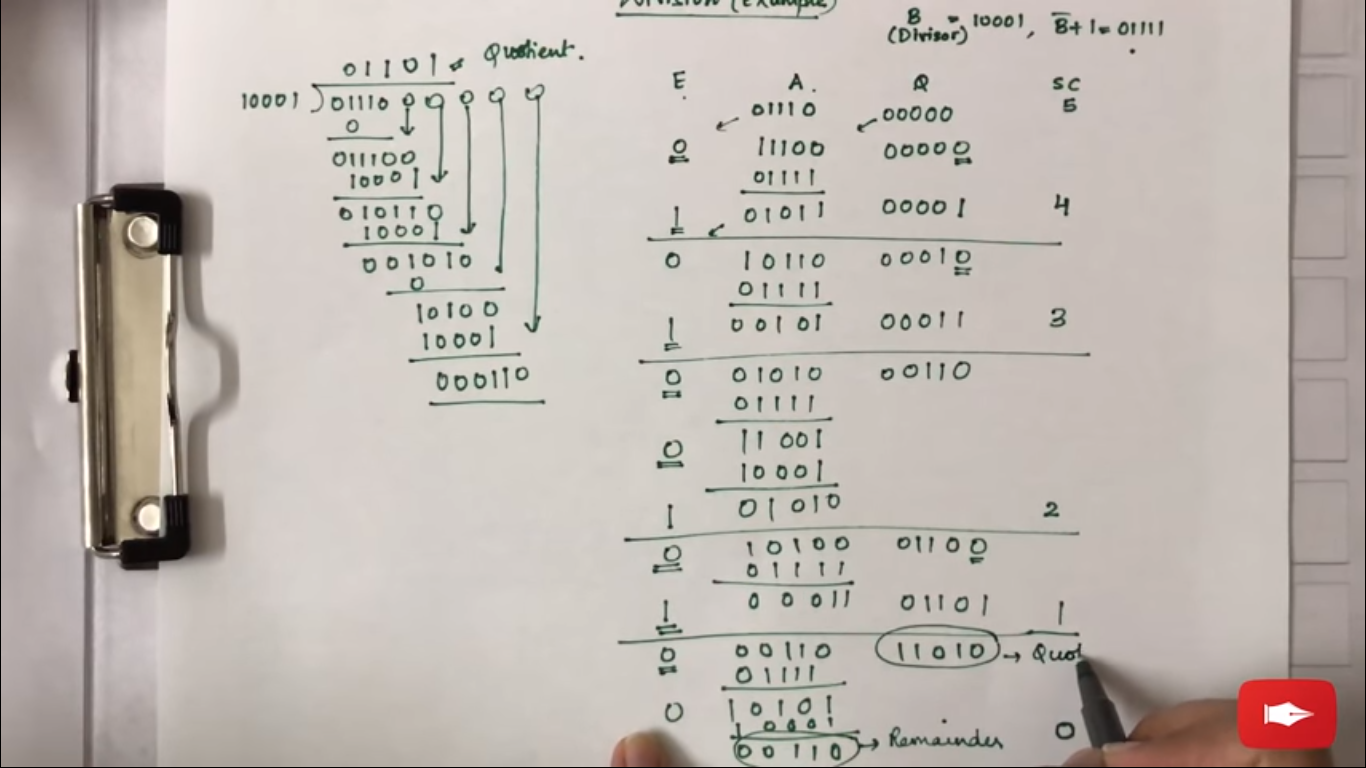 DIVISION (Example)
B (Divisor) = 10001, B̅+1 = 01111
01101 Quotient.
10001 ) 01110 0 0 0 0 0
0
011100
10001
010110
10001
001010
0
10100
10001
000110
E A. Q SC
01110 00000 5
0 11100 00000
01111
1 01011 00001 4
0 10110 00010
01111
1 00101 00011 3
0 01010 00110
01111
0 11001
10001
1 01010 2
0 10100 01100
01111
1 00011 01101 1
0 00110 11010 → Quot
01111
0 10101
10001
00110 → Remainder 0